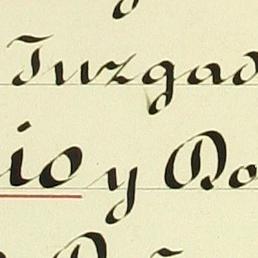 Juzgad
io y Do